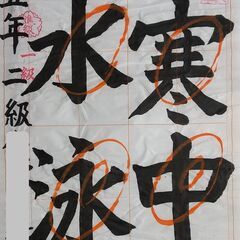 寒中
水泳
五年二級
一級